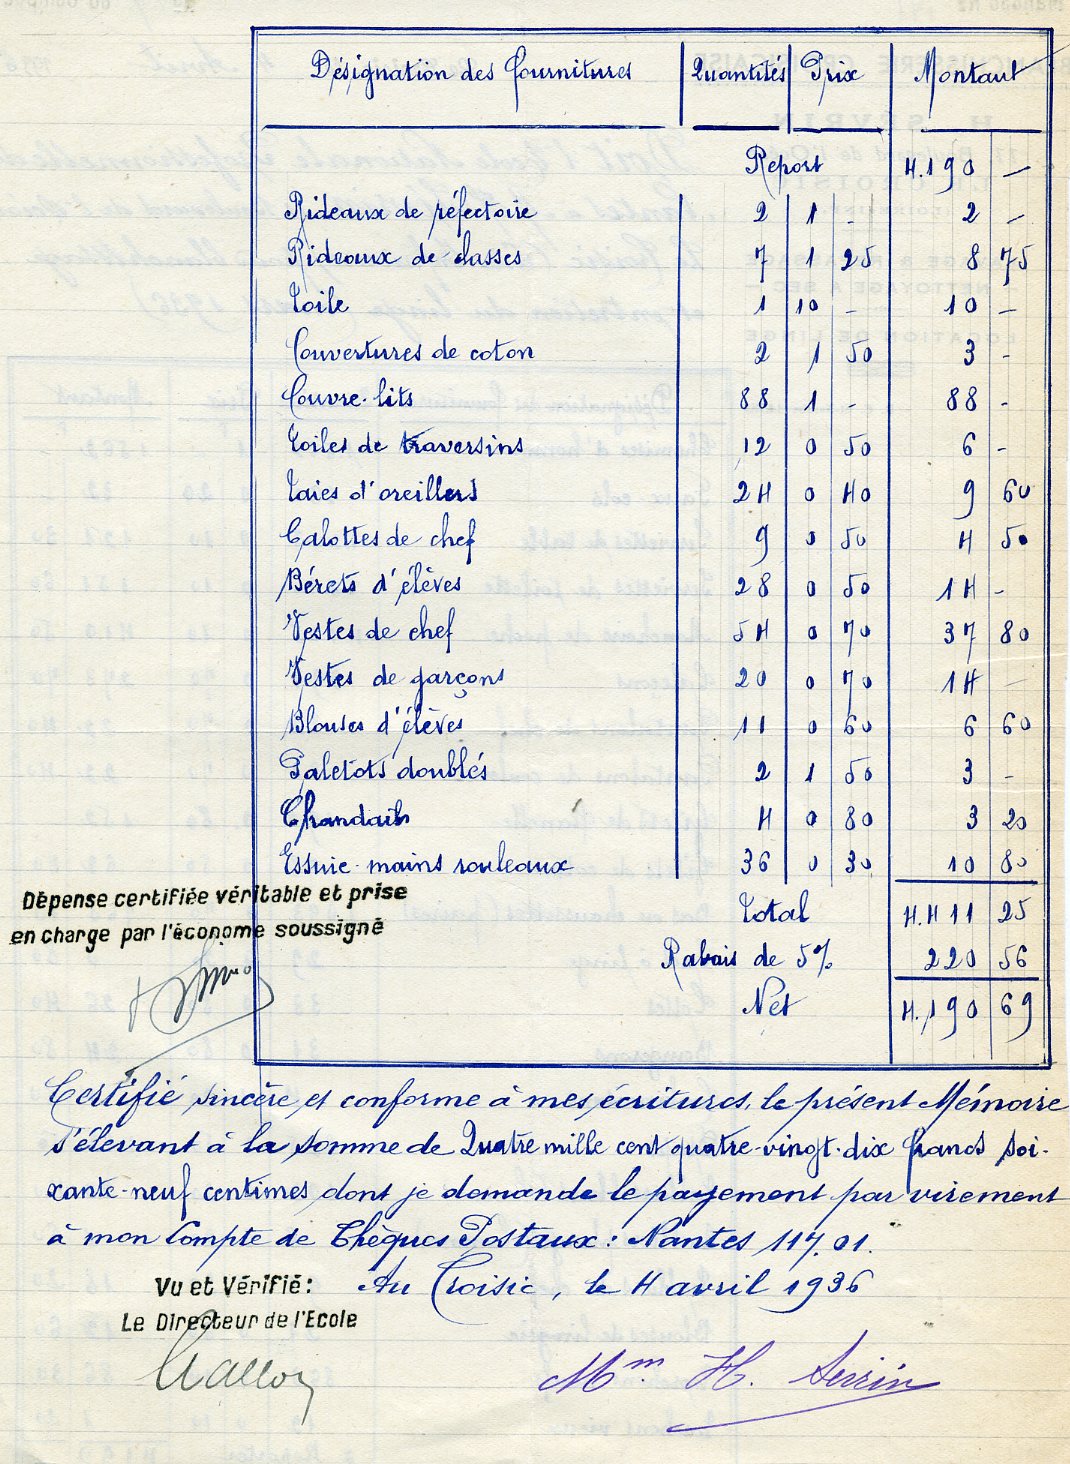 Désignation des fournitures Quantités Prix Montant
Report 4.190 —
Rideaux de réfectoire 2 1 - 2 -
Rideaux de classes 7 1 25 8 75
Toile 1 10 - 10 -
Couvertures de coton 2 1 50 3 -
Couvre-lits 88 1 - 88 -
Toiles de traversins 12 0 50 6 -
Taies d'oreillers 24 0 40 9 60
Calottes de chef 9 0 50 4 50
Bérets d'élèves 28 0 50 14 -
Vestes de chef 54 0 70 37 80
Vestes de garçons 20 0 70 14 —
Blouses d'élèves 11 0 60 6 60
Paletots doublés 2 1 50 3 -
Chandails 4 0 80 3 20
Essuie-mains rouleaux 36 0 30 10 80
Total 4.411 25
Rabais de 5% 220 56
Net 4.190 69
Dépense certifiée véritable et prise
en charge par l'économe soussigné
Certifié sincère et conforme à mes écritures, le présent Mémoire
s'élevant à la somme de Quatre mille cent quatre-vingt-dix francs soi-
xante-neuf centimes dont je demande le payement par virement
à mon Compte de Chèques Postaux : Nantes 117.01.
Au Croisic, le 4 avril 1936
Vu et Vérifié :
Le Directeur de l'Ecole
Mm H. Sévrin